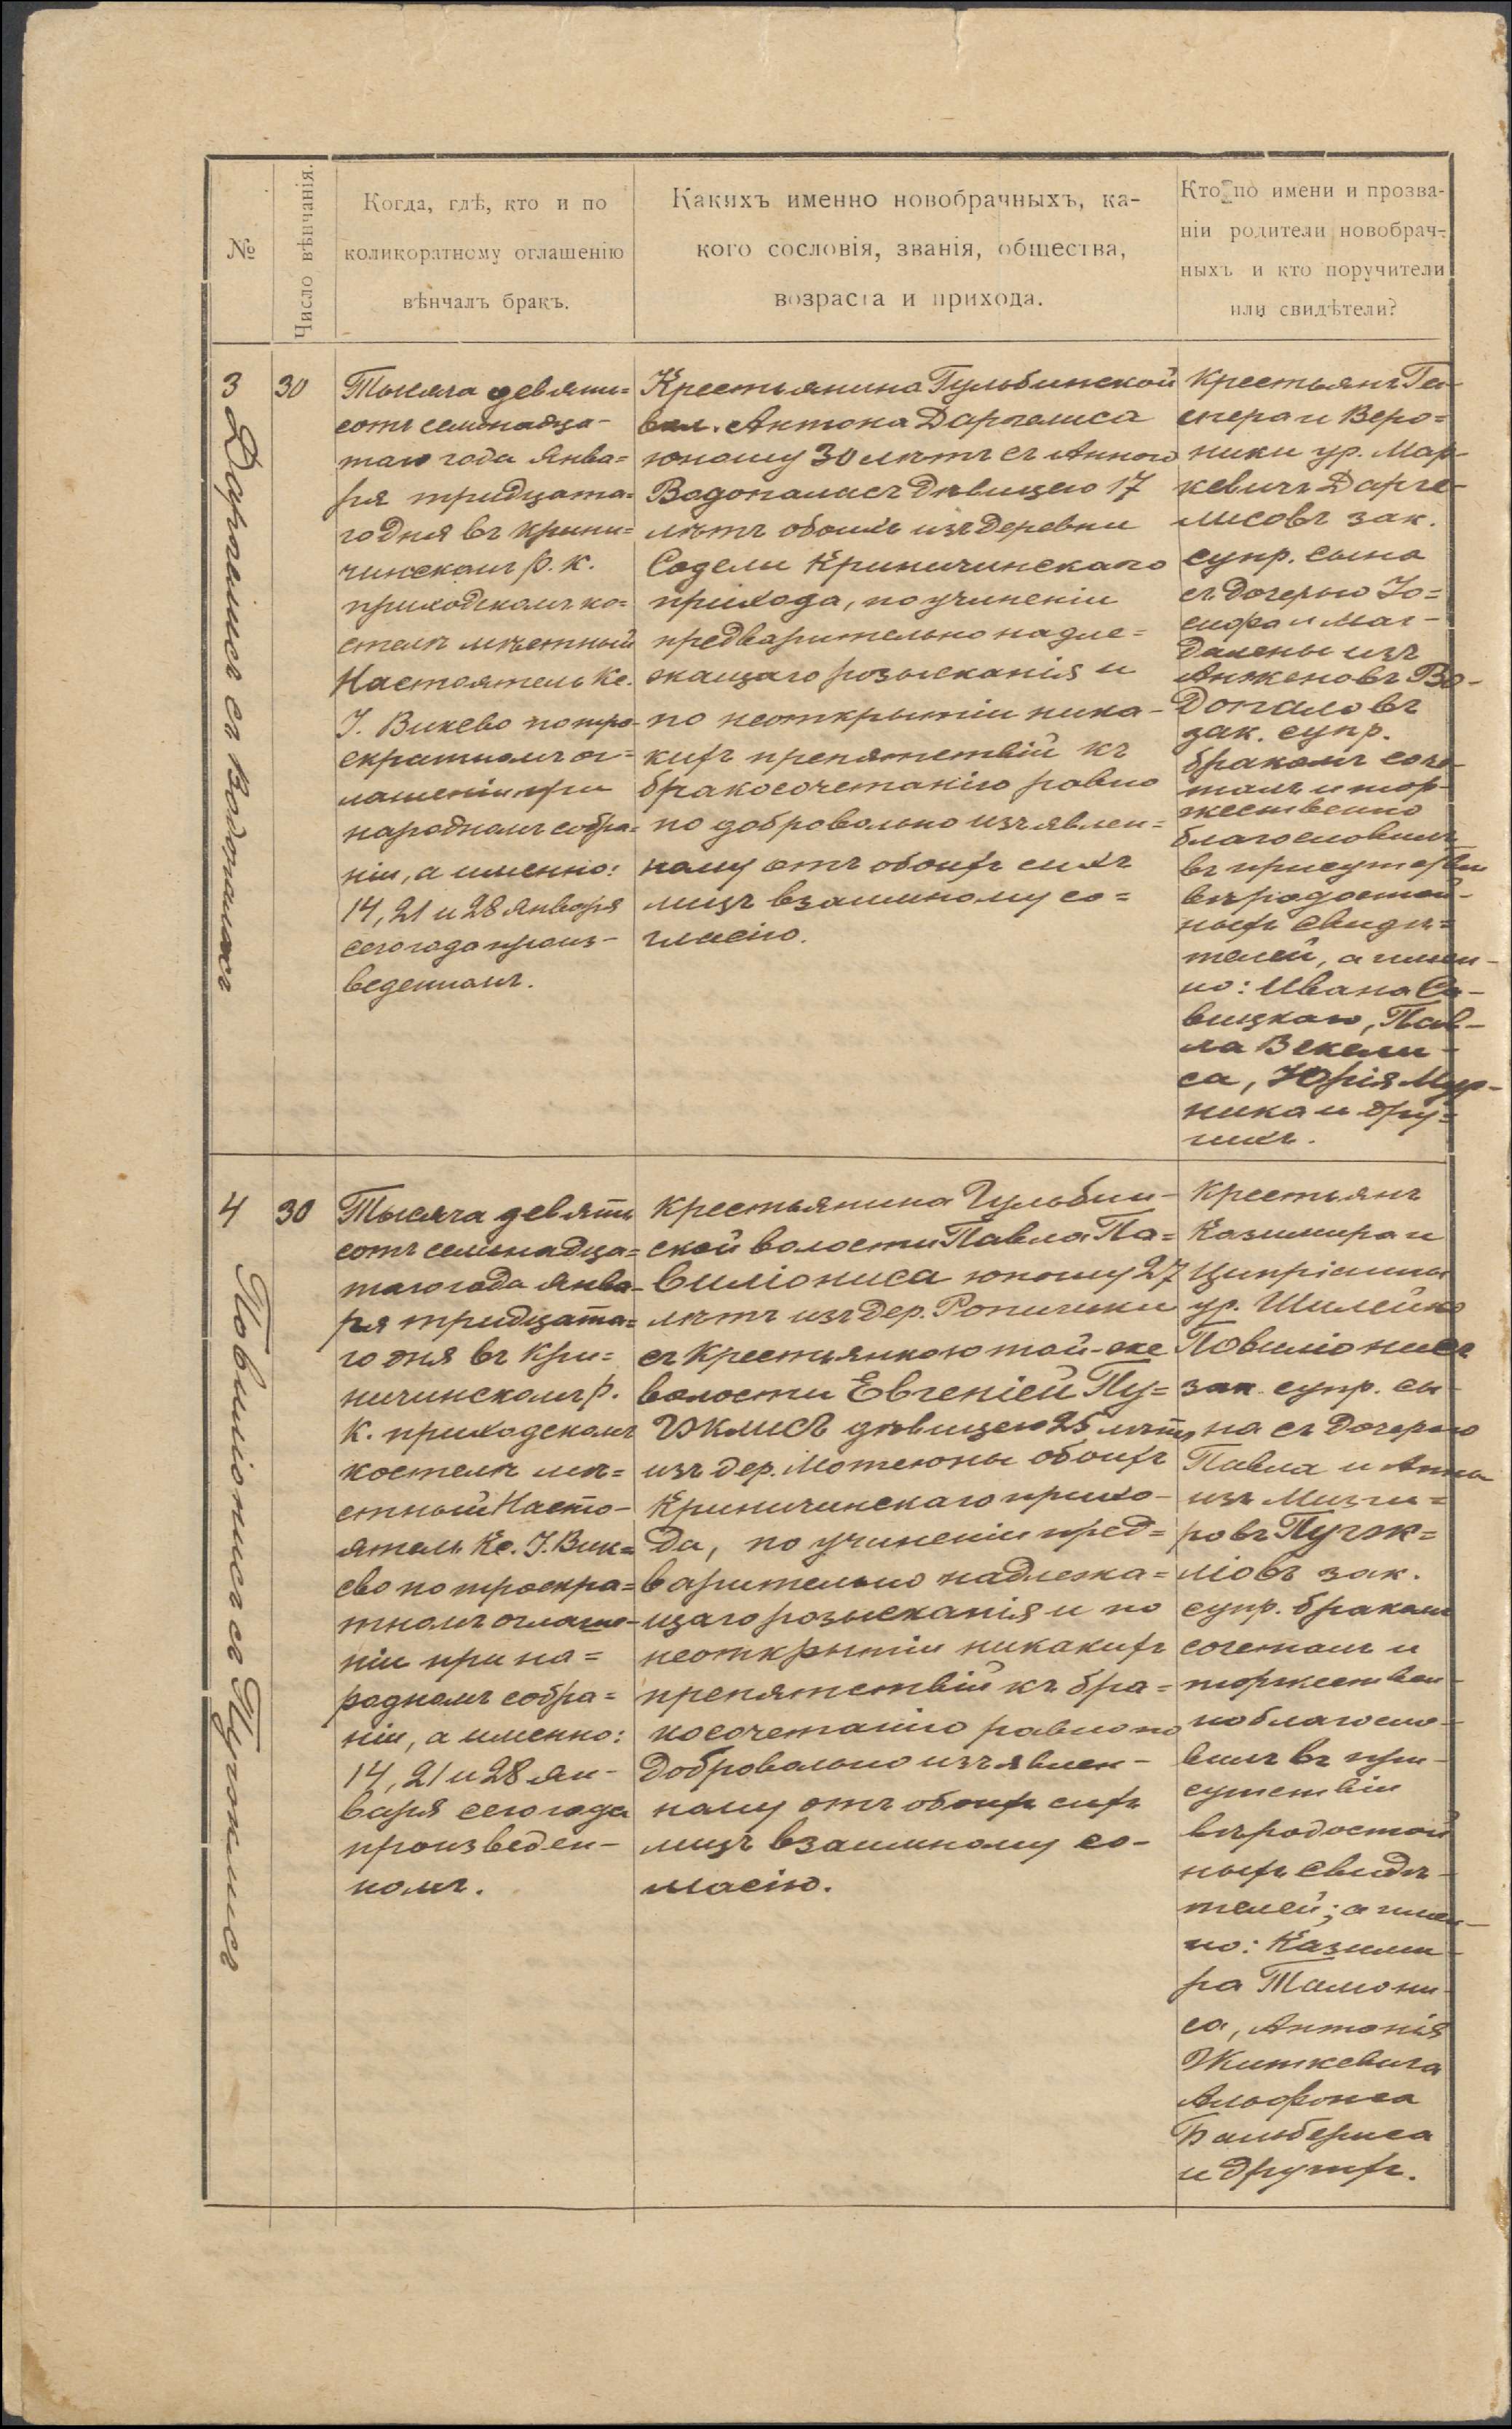 №
Число вѣнчанія.
Когда, гдѣ, кто и по
коликоратному оглашенію
вѣнчалъ бракъ.
Какихъ именно новобрачныхъ, ка-
кого сословія, званія, общества,
возраста и прихода.
Кто по имени и прозва-
ніи родители новобрач-
ныхъ и кто поручители
или свидѣтели?
3
Даргелисъ съ Водопаласъ
30
Тысяча девять=
сотъ семнадца-
таго года Янва=
ря тридцата=
го дня въ Крини=
чинскомъ р. к.
приходскомъ ко=
стелѣ мѣстный
Настоятель Кс.
І. Викево по тро-
екратномъ ог=
лашеніи при
народномъ собра=
ніи, а именно:
14, 21 и 28 Января
сего года произ-
веденномъ.
Крестьянина Гульбинской
вол. Антона Даргелиса
юношу 30 лѣтъ съ Анною
Водопаласъ дѣвицею 17
лѣтъ обоихъ изъ деревни
Содели Криничинскаго
прихода, по учиненіи
предварительно надле=
жащаго розысканія и
по неоткрытіи ника-
кихъ препятствій къ
бракосочетанію равно
по добровольно изъявлен=
ному отъ обоихъ сихъ
лицъ взаимному со=
гласію.
Крестьянъ Га-
спера и Веро=
ники ур. Мар-
кевичъ Дарге-
лисовъ зак.
супр. сына
съ дочерью Іо=
сифа и Маг-
далены изъ
Анженовъ Во-
допаловъ
зак. супр.
бракомъ соче-
талъ и тор-
жественно
благословилъ
въ присутствіи
вѣродостой-
ныхъ свидѣ=
телей, а имен-
но: Ивана Са-
вицкаго, Пав-
ла Векели-
са, Юрія Мур-
ника и дру=
гихъ.
4
Повиліонисъ съ Пугжлисъ
30
Тысяча девять
сотъ семнадца=
таго года Янва-
ря тридцата=
го дня въ Кри=
ничинскомъ р.
к. приходскомъ
костелѣ мѣ=
стный Насто-
ятель Кс. І. Вик=
ево по троекра=
тномъ оглаше-
ніи при на=
родномъ собра=
ніи, а именно:
14, 21 и 28 Ян-
варя сего года
произведен-
номъ.
Крестьянина Гульбин-
ской волости Павла По=
виліониса юношу 27
лѣтъ изъ дер.
съ крестьянкою той-же
волости Евгеніей Пу=
гжлисъ дѣвицею 25 лѣтъ
изъ дер. Мотеюны обоихъ
Криничинскаго прихо-
да, по учиненіи пред=
варительно надлежа=
щаго розысканія и по
неоткрытіи никакихъ
препятствій къ бра=
косочетанію равно по
добровольно изъявлен-
ному отъ обоихъ сихъ
лицъ взаимному со-
гласію.
Крестьянъ
Казимира и
Ципріанны
ур. Шилейко
Повиліонисъ
зак. супр. сы-
на съ дочерью
Павла и Анны
изъ Мизги=
ровъ Пугжк=
ліовъ зак.
супр. бракомъ
сочеталъ и
торжествен-
но благосло-
вилъ въ при-
сутствіи
вѣродостой
ныхъ свидѣ-
телей; а имен-
но: Казими-
ра Тамони-
са, Антонія
Житкевича
Альфонса
Бамбериса
и другихъ.